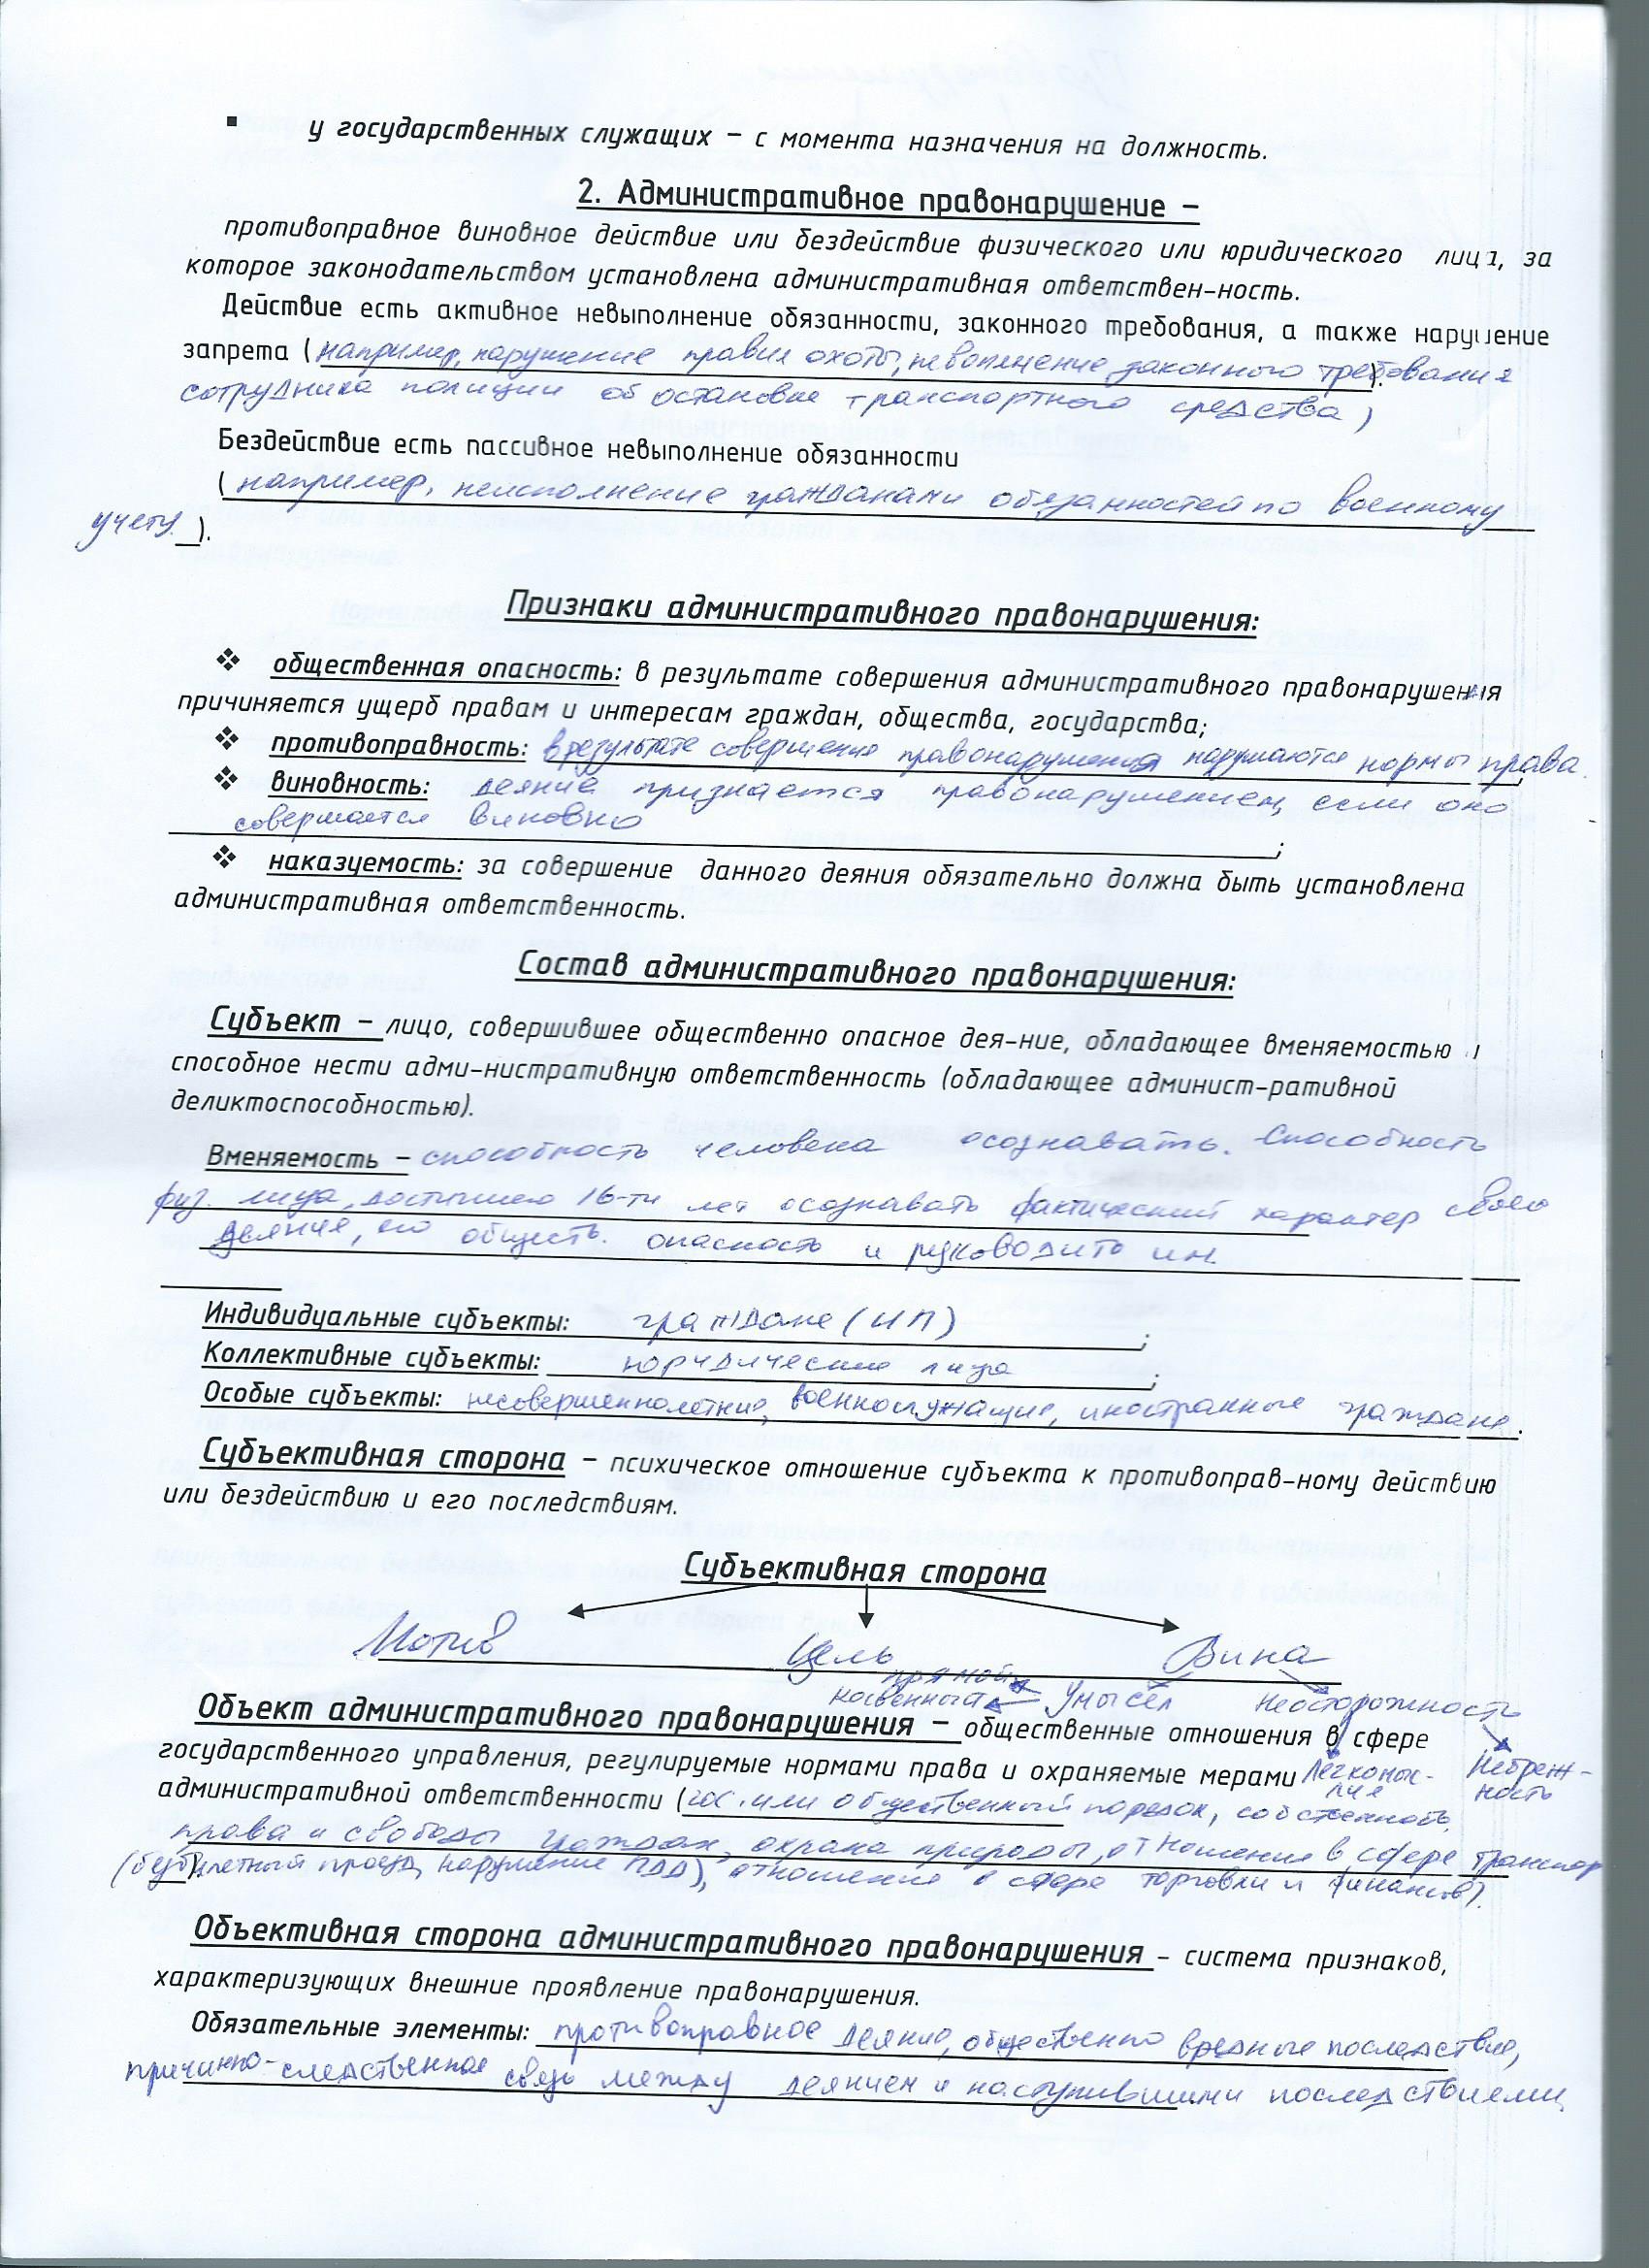 ▪ у государственных служащих – с момента назначения на должность.
2. Административное правонарушение –
противоправное виновное действие или бездействие физического или юридического лица, за
которое законодательством установлена административная ответствен-ность.
Действие есть активное невыполнение обязанности, законного требования, а также нарушение
запрета (например, нарушение правил охоты, невополнение законного требования).
сотрудника полиции об остановке транспортного средства)
Бездействие есть пассивное невыполнение обязанности
(например, неисполнение гражданами обязанностей по военному
учету ).
Признаки административного правонарушения:
❖ общественная опасность: в результате совершения административного правонарушения
причиняется ущерб правам и интересам граждан, общества, государства;
❖ противоправность: в результате совершения правонарушения нарушаются нормы права.
❖ виновность: деяние признается правонарушением, если оно
совершается виновно ;
❖ наказуемость: за совершение данного деяния обязательно должна быть установлена
административная ответственность.
Состав административного правонарушения:
Субъект – лицо, совершившее общественно опасное дея-ние, обладающее вменяемостью и
способное нести адми-нистративную ответственность (обладающее админист-ративной
деликтоспособностью).
Вменяемость – способность человека осознавать. Способность
физ. лица, достигшего 16-ти лет осознавать фактический характер своего
деяния, его обществ. опасность и руководить им.
Индивидуальные субъекты: граждане (ИП) ;
Коллективные субъекты: юридические лица ;
Особые субъекты: несовершеннолетние, военнослужащие, иностранные граждане.
Субъективная сторона – психическое отношение субъекта к противоправ-ному действию
или бездействию и его последствиям.
Субъективная сторона
Мотив Цель Вина
прямой
косвенный Умысел Неосторожность
Объект административного правонарушения – общественные отношения в сфере
государственного управления, регулируемые нормами права и охраняемые мерами Легкомыс- Небреж-
лие ность
административной ответственности (гос. или общественный порядок, собственность,
права и свободы граждан, охрана природы, отношения в сфере транспор
(безбилетный проезд, нарушение ПДД), отношения в сфере торговли и финансов).
Объективная сторона административного правонарушения – система признаков,
характеризующих внешние проявление правонарушения.
Обязательные элементы: противоправное деяние, общественно вредные последствия,
причинно-следственная связь между деянием и наступившими последствиями